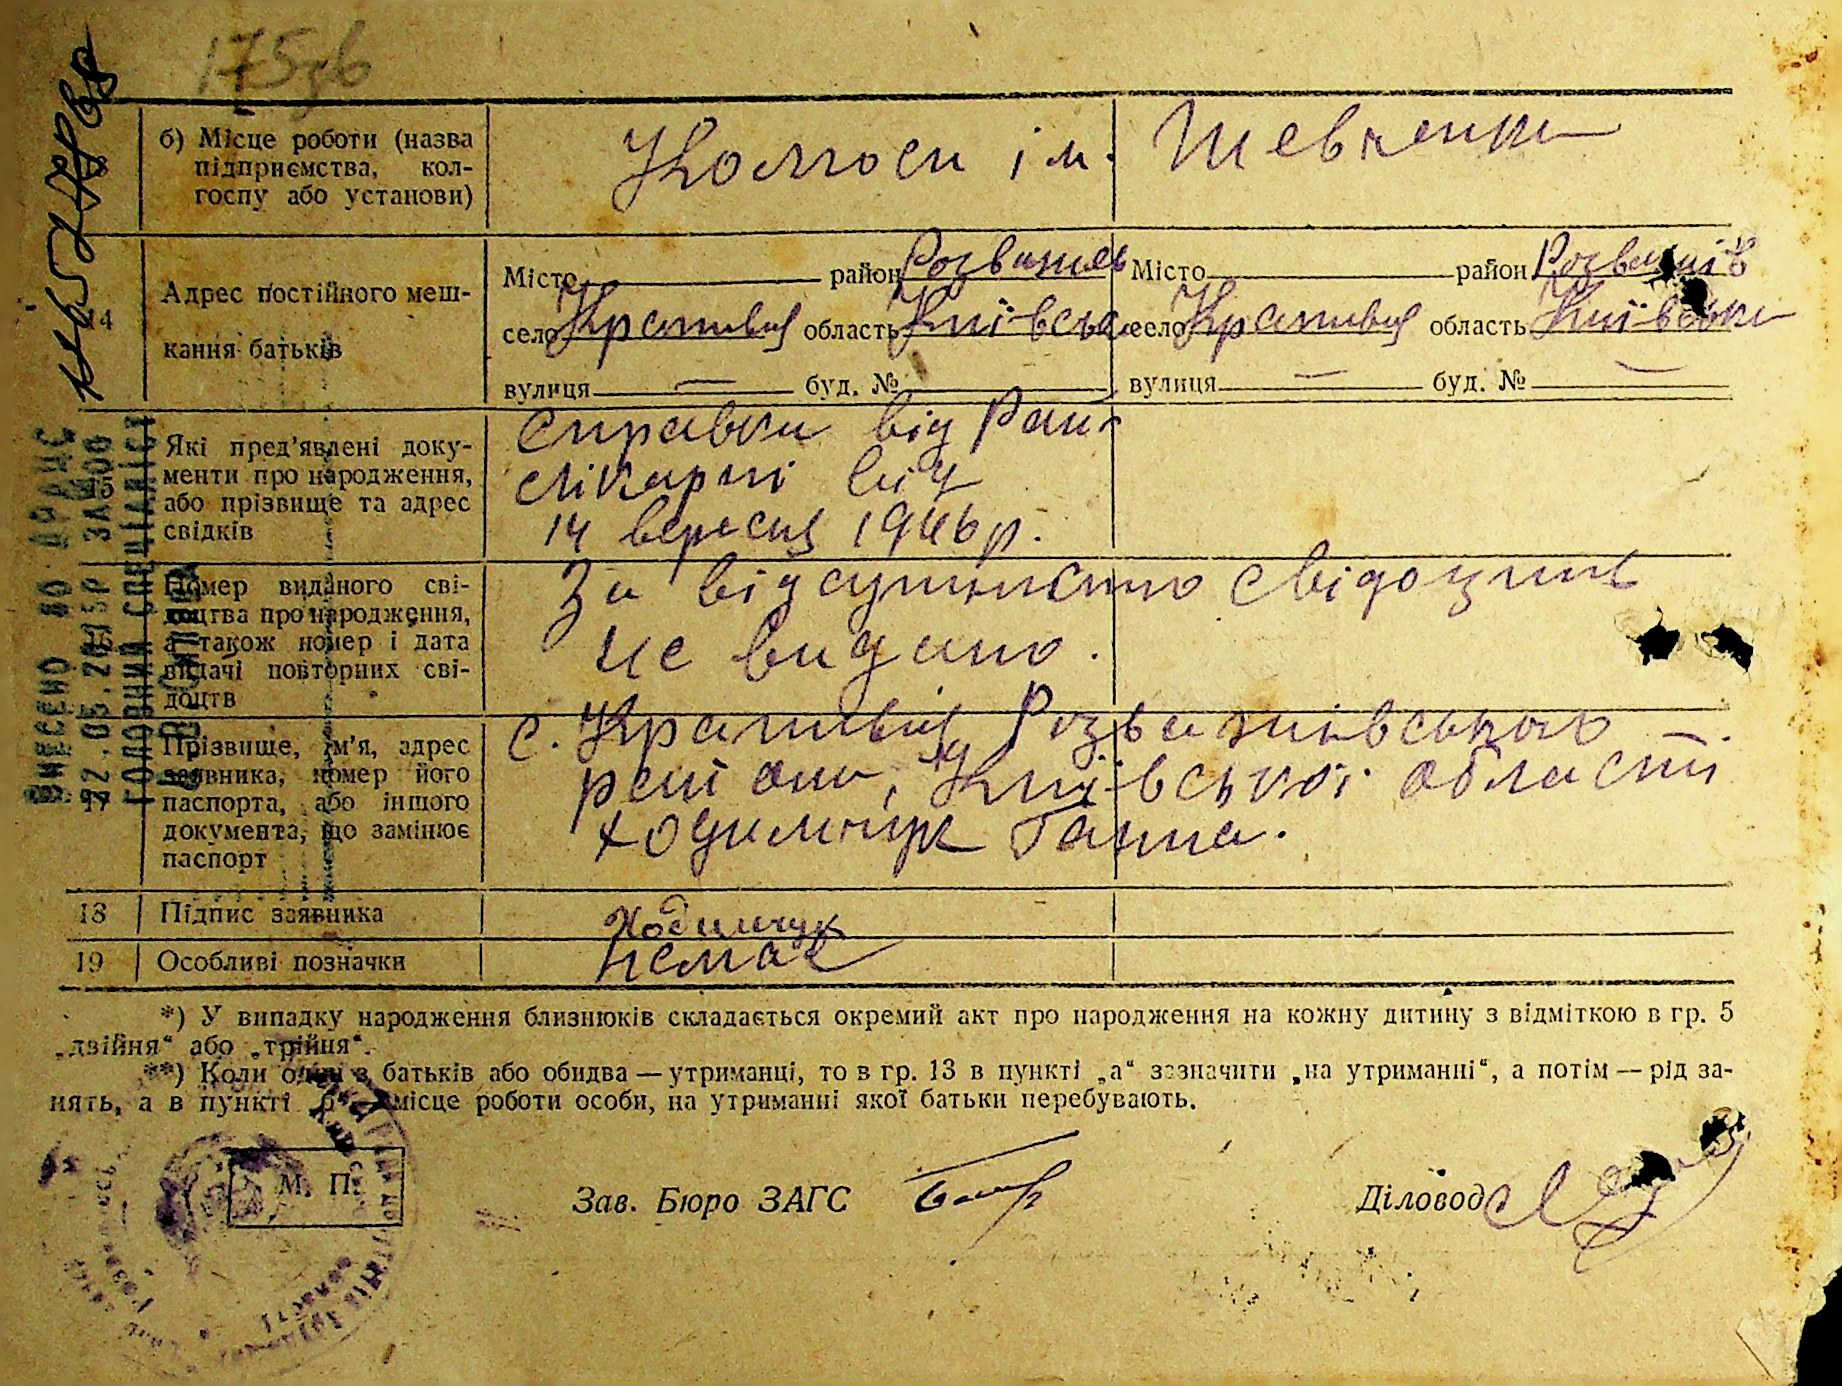 175зв
б) Місце роботи (назва
13 підприємства, кол-
госпу або установи)
Колгосп ім. Шевченка
14 Адрес постійного меш-
кання батьків
Місто район Розважів
село Крапивня область Київська
вулиця — буд. №
Місто район Розважів
село Крапивня область Київська
вулиця — буд. № —
15 Які пред'явлені доку-
менти про народження,
або прізвище та адрес
свідків
Справка від Рай-
лікарні від
14 вересня 1946 р.
16 Номер виданого сві-
доцтва про народження,
а також номер і дата
видачі повторних сві-
доцтв
За відсутністю свідоцтв
не видано.
17 Прізвище, ім'я, адрес
заявника, номер його
паспорта, або іншого
документа, що замінює
паспорт
с. Крапивня Розважівського
району, Київської області
Ходимчук Ганна.
18 Підпис заявника
Ходимчук
19 Особливі позначки
немає
*) У випадку народження близнюків складається окремий акт про народження на кожну дитину з відміткою в гр. 5
„двійня“ або „трійня“.
**) Коли один з батьків або обидва — утриманці, то в гр. 13 в пункті „а“ зазначити „на утриманні“, а потім — рід за-
нять, а в пункті „б“ — місце роботи особи, на утриманні якої батьки перебувають.
М. П.
Зав. Бюро ЗАГС
Діловод
ВНЕСЕНО ДО ДРАЦС
ГОЛОВНИЙ СПЕЦІАЛІСТ